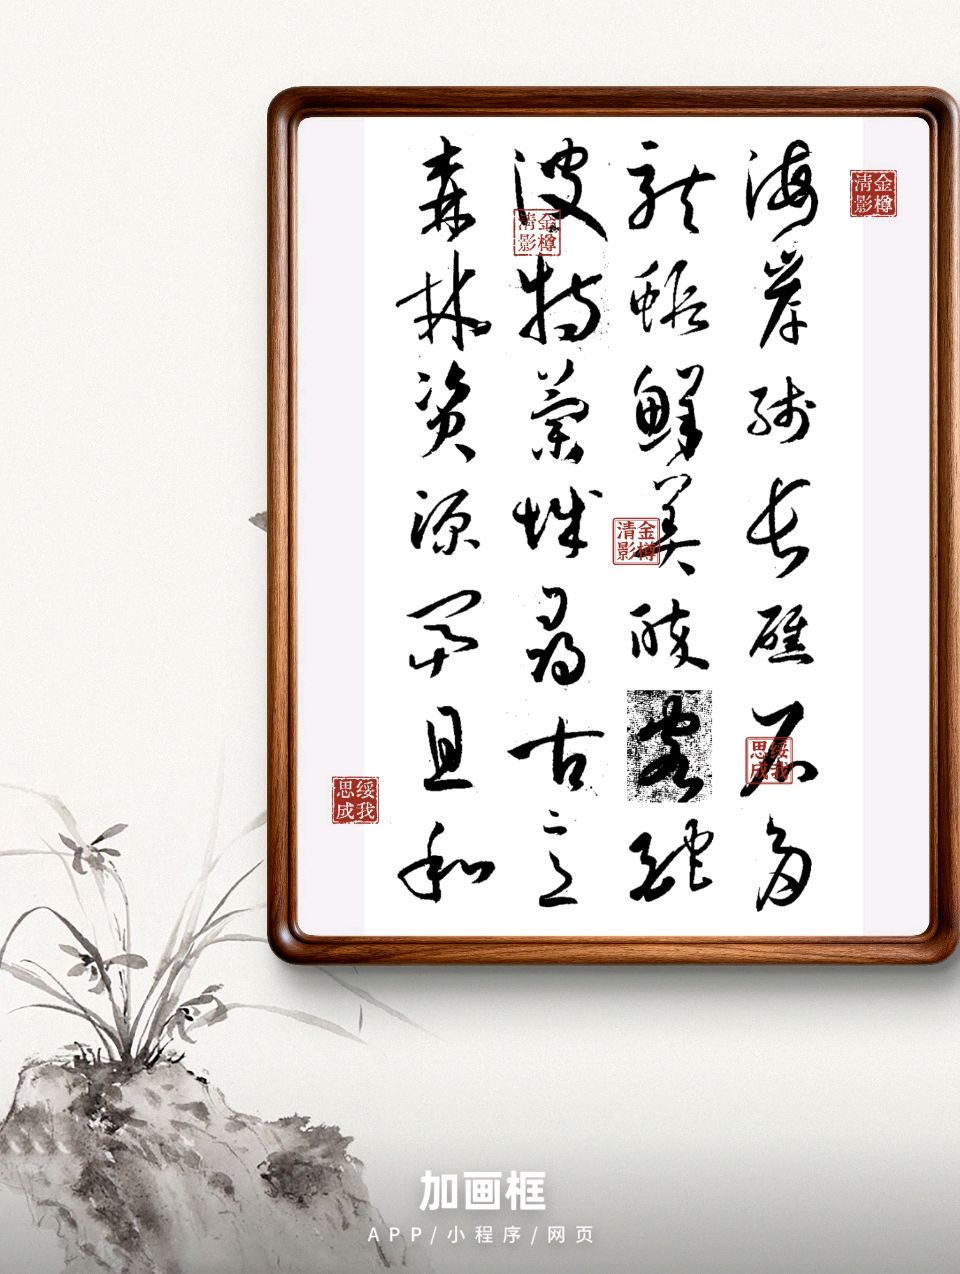 海岸线长礁石多
龙虾鲜美客
波特兰城寻古
森林资源且和
金樽清影
金樽清影
金樽清影
绥我思成
绥我思成
加画框
APP/小程序/网页